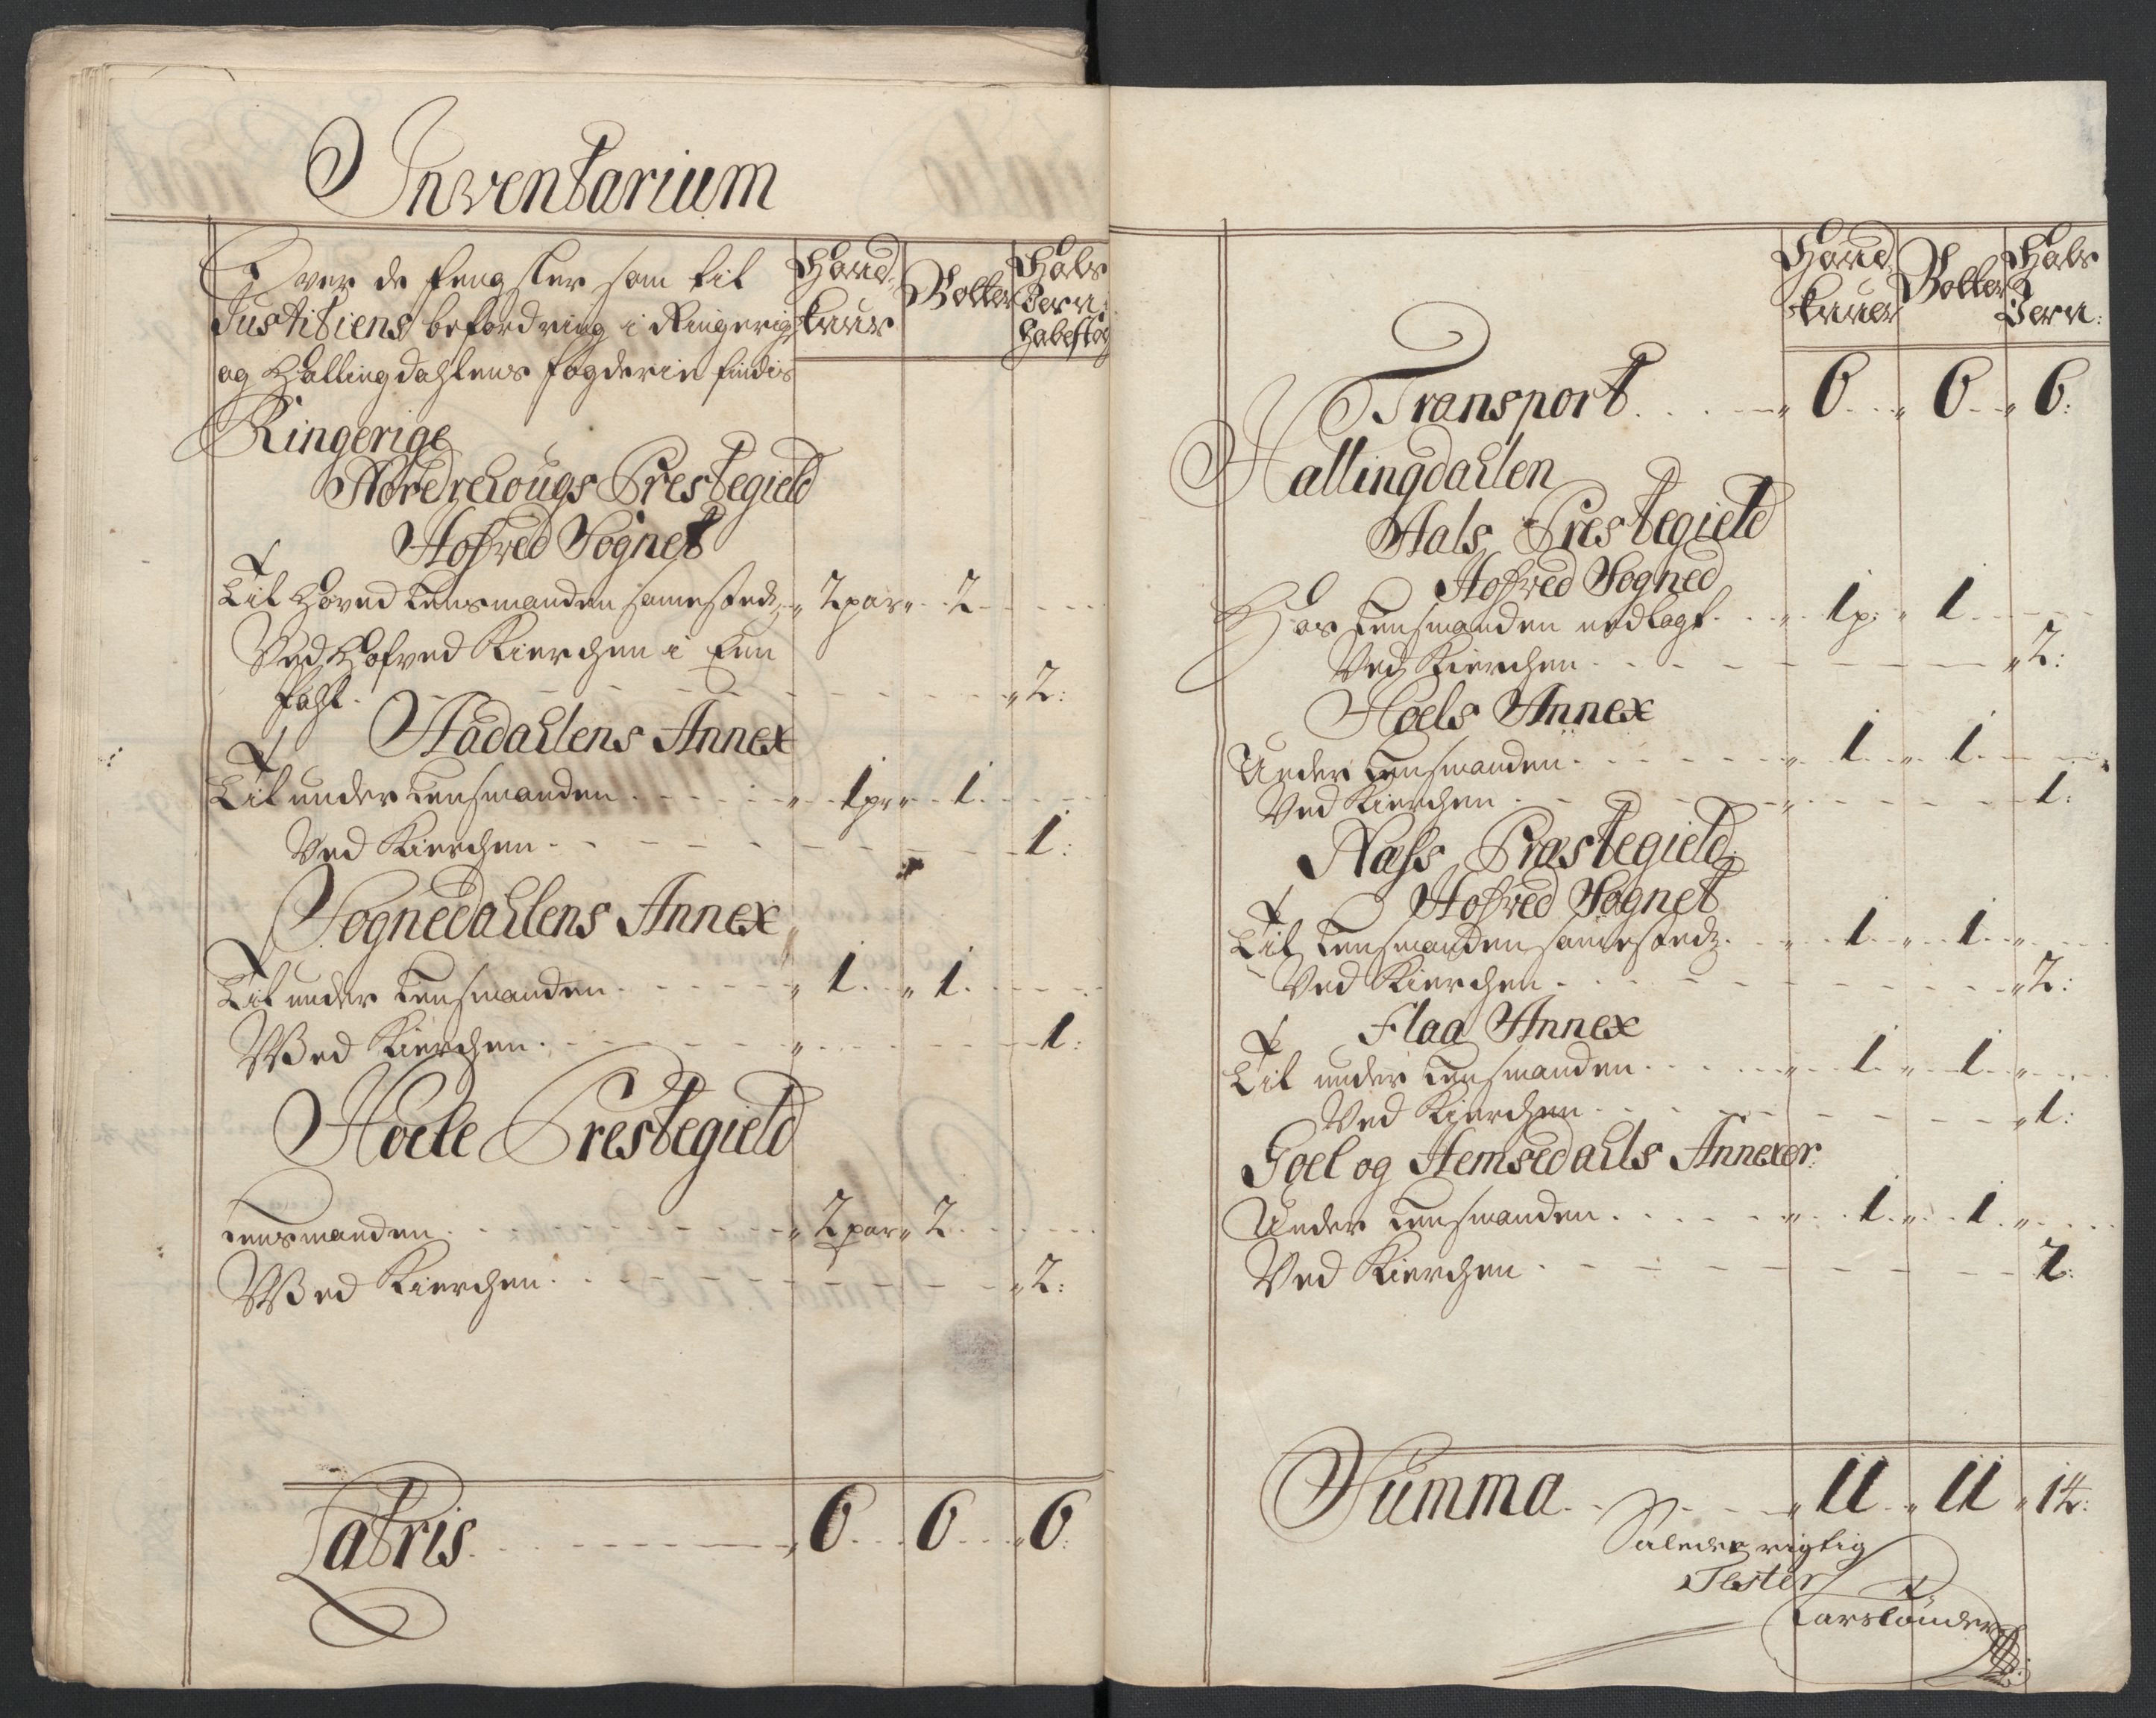 Inventarium
Over de fengsler som til
Justitiens befordring i Ringerig
og Hallingdahlens fogderie findis
Haand
Bolter
Hals
Jern
Ringerige
Nordrehougs Prestegield
Hofved Sognet
Til Hoved Lensmanden samestedz 2 par 2
Ved Hofved Kierchen i Enn
2:
Aadahlens Annex
Til under Lensmanden 1 pr 1
Ved Kierchen 1:
Sognedahlens Annex
Til under Lensmanden 1 1
Wed Kierchen 1:
Hoele Prestegield
Lensmanden 2 par 2
Wed Kierchen 2:
Latris 6 6 6:
Haand
Bolter
Hals
Jern:
Transport 6 6 6:
Hallingdahlen
Aals Prestegield
Hofved Sogned
Hos Lensmanden nedlagt 1 p: 1
Ved Kierchen 2:
Hoels Annex
Under Lensmanden 1 1
Ved Kierchen 1:
Næss Præstegield
Hofved Sognet
Til Lensmanden samestedz 1 1
Ved Kierchen 2:
Flaa Annex
Til under Lensmanden 1 1
Ved Kierchen 1:
Goel og Hemsedahls Annexer:
Under Lensmanden 1 1
Ved Kierchen 2:
Summa 11 11 14:
Saledes rigtig
Tester